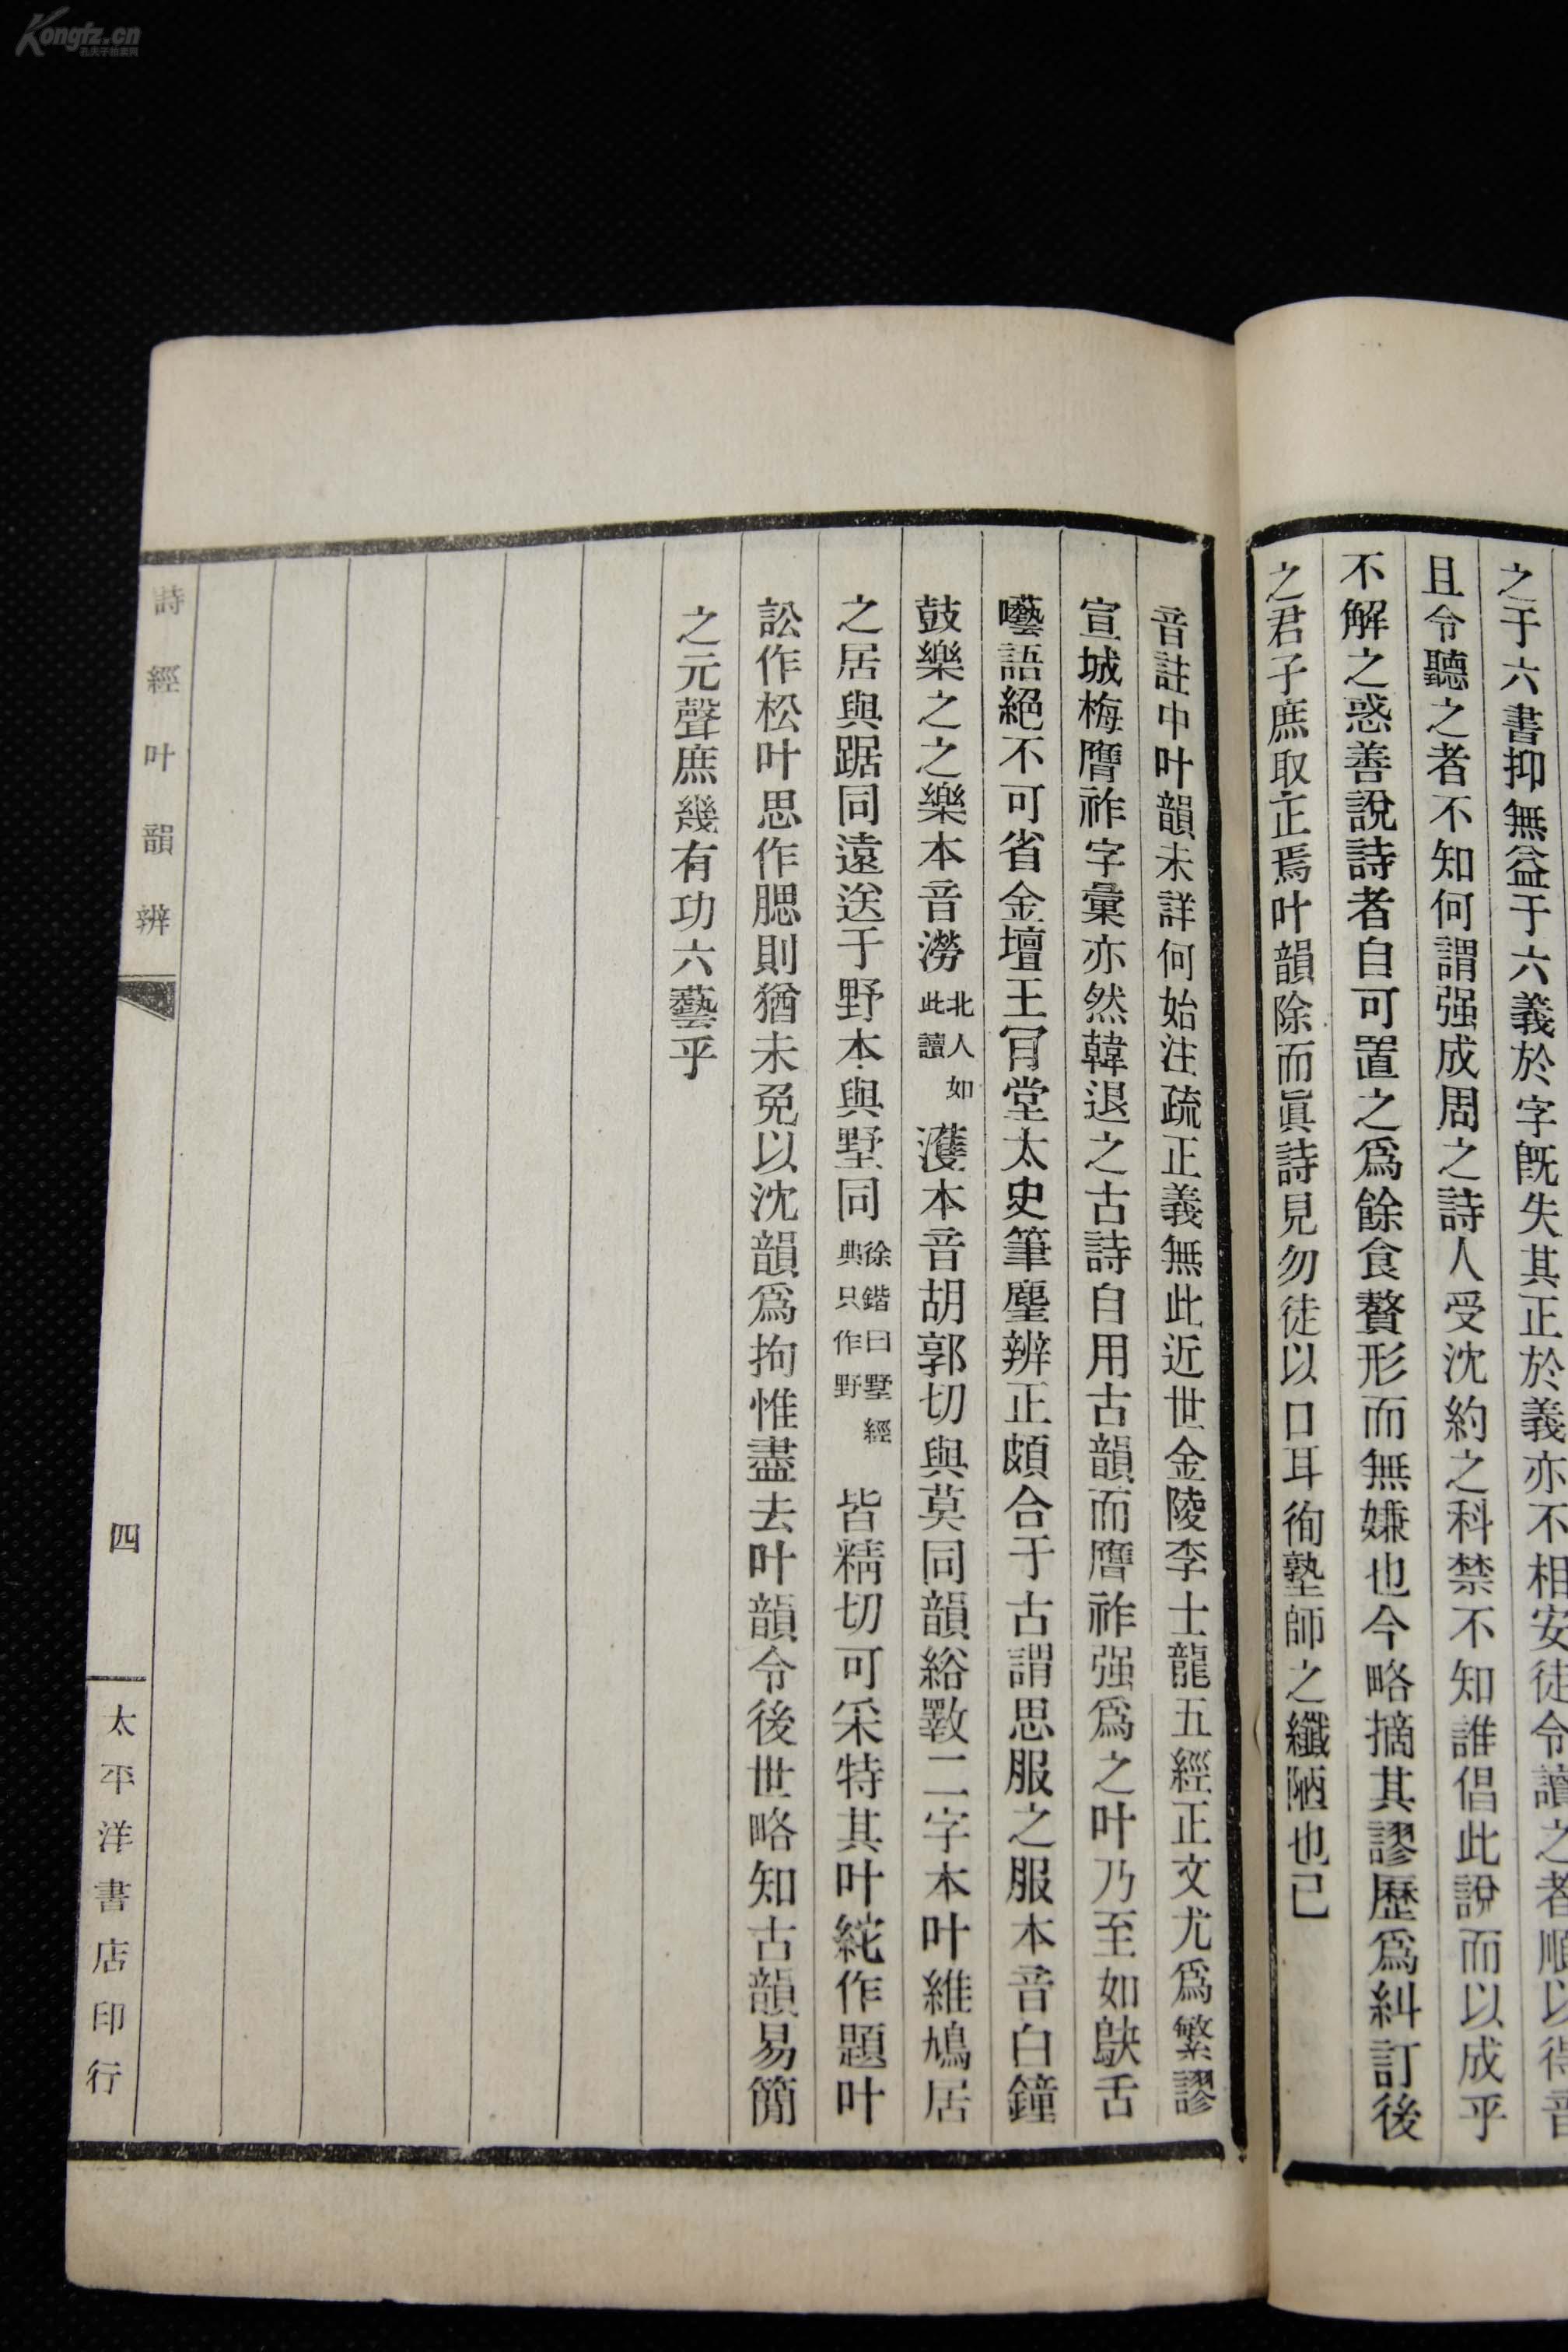 之于六書抑無益于六義於字旣失其正於義亦不相安徒令讀之者順以得音
且令聽之者不知何謂强成周之詩人受沈約之科禁不知誰倡此說而以成乎
不解之惑善說詩者自可置之爲餘食贅形而無嫌也今略摘其謬歷爲糾訂後
之君子庶取正焉叶韻除而眞詩見勿徒以口耳徇塾師之纖陋也已
音註中叶韻未詳何始注疏正義無此近世金陵李士龍五經正文尤爲繁謬
宣城梅膺祚字彙亦然韓退之古詩自用古韻而膺祚强爲之叶乃至如鴃舌
囈語絕不可省金壇王肎堂太史筆麈辨正頗合于古謂思服之服本音白鐘
鼓樂之之樂本音澇北人如此讀濩本音胡郭切與莫同韻綌斁二字本叶維鳩居
之居與踞同遠送于野本與墅同徐鍇曰墅經典只作野皆精切可采特其叶紽作題叶
訟作松叶思作腮則猶未免以沈韻爲拘惟盡去叶韻令後世略知古韻易簡
之元聲庶幾有功六藝乎
詩經叶韻辨
四
太平洋書店印行
Kongfz.cn
孔夫子拍卖网